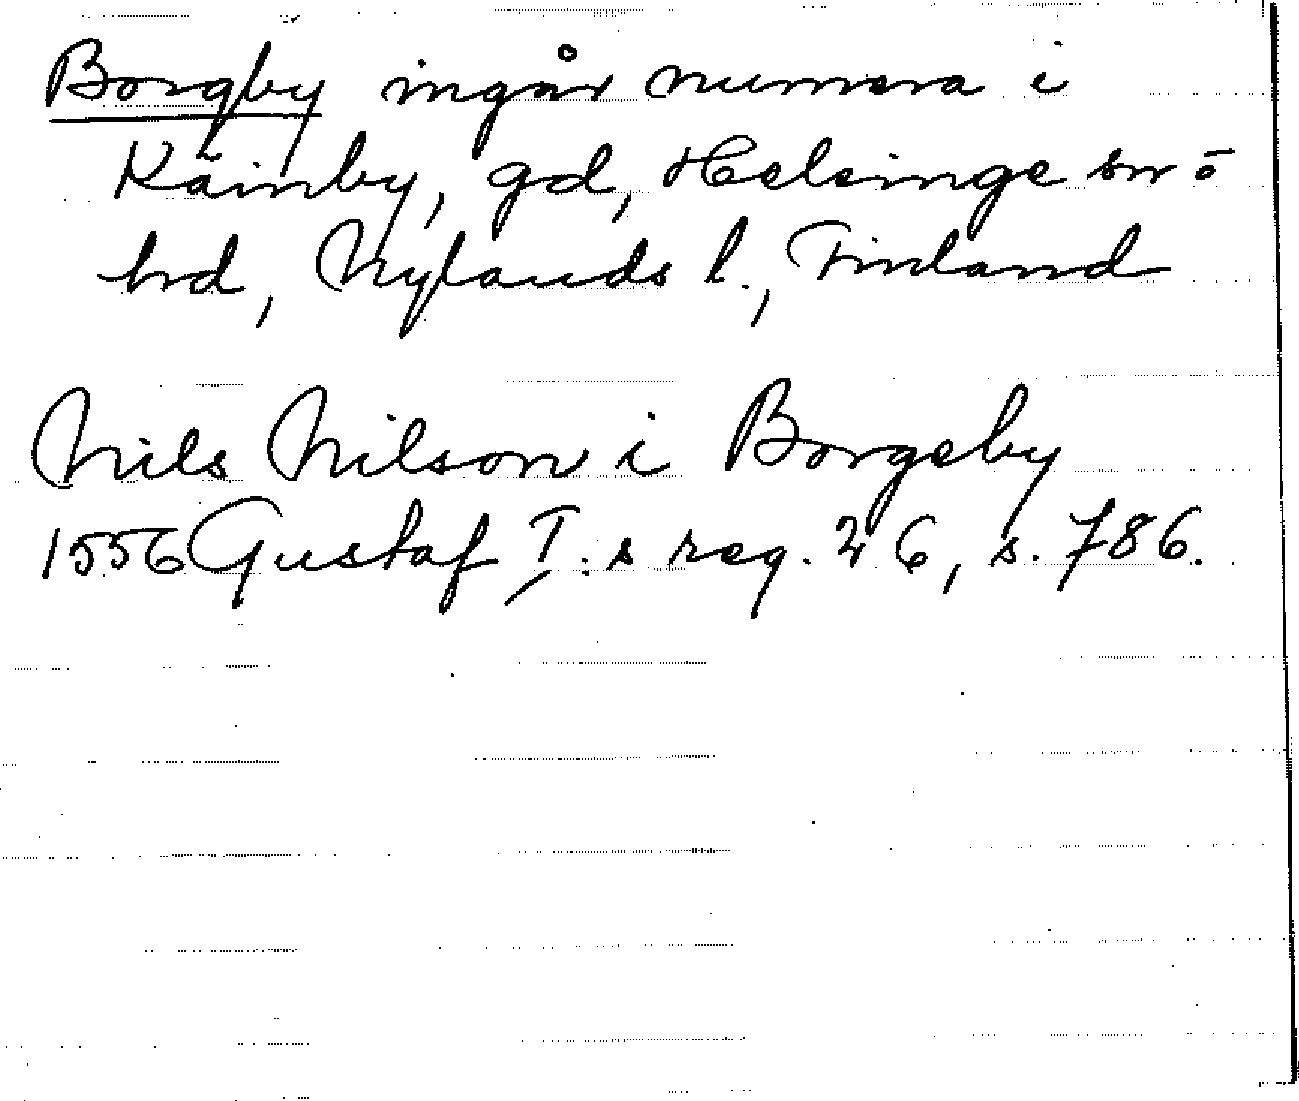 Borgby ingår numera i
Käinby, gd, Helsinge sn o
hd, Nylands l., Finland
Nils Nilson i Borgeby
1556 Gustaf I:s reg. 26, s. 786.